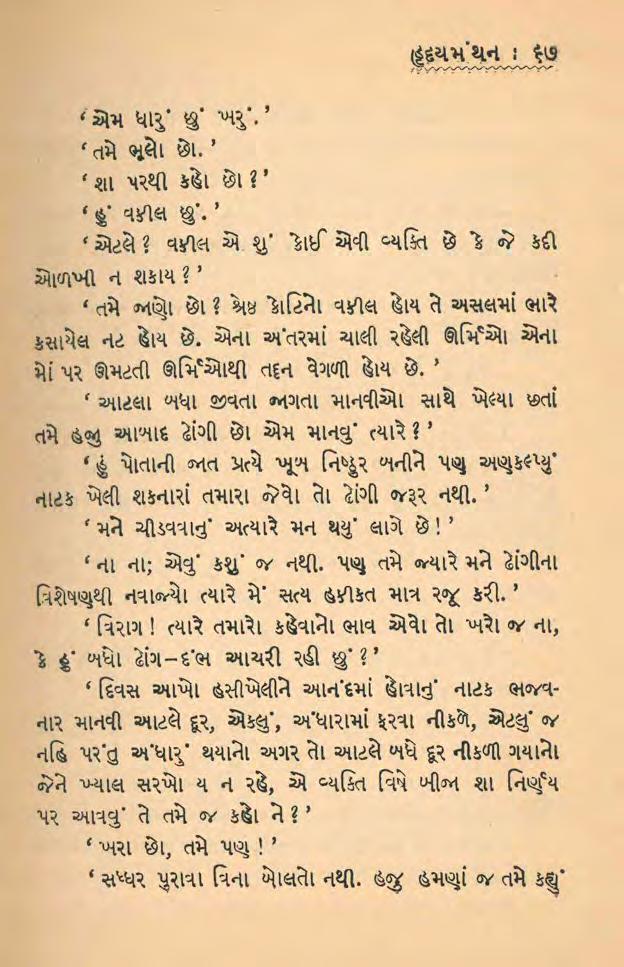 હૃદયમંથન : ૬૭
‘ એમ ધારું છું ખરું. ’
‘ તમે ભૂલો છો. ’
‘ શા પરથી કહો છો ? ’
‘ હું વકીલ છું. ’
‘ એટલે ? વકીલ એ શું કોઈ એવી વ્યક્તિ છે કે જે કદી
ઓળખી ન શકાય ? ’
‘ તમે જાણો છો ? શ્રેષ્ઠ કોટિનો વકીલ હોય તે અસલમાં ભારે
કસાયેલ નટ હોય છે. એના અંતરમાં ચાલી રહેલી ઊર્મિઓ એના
મોં પર ઊમટતી ઊર્મિઓથી તદ્દન વેગળી હોય છે. ’
‘ આટલા બધા જીવતા જાગતા માનવીઓ સાથે ખેલ્યા છતાં
તમે હજી આબાદ ઢોંગી છો એમ માનવું ત્યારે ? ’
‘ હું પોતાની જાત પ્રત્યે ખૂબ નિષ્ઠુર બનીને પણ અણકલ્પ્યું
નાટક ખેલી શકનારાં તમારા જેવો તો ઢોંગી જરૂર નથી. ’
‘ મને ચીડવવાનું અત્યારે મન થયું લાગે છે ! ’
‘ ના ના; એવું કશું જ નથી. પણ તમે જ્યારે મને ઢોંગીના
વિશેષણથી નવાજ્યો ત્યારે મેં સત્ય હકીકત માત્ર રજૂ કરી. ’
‘ વિરાગ ! ત્યારે તમારો કહેવાનો ભાવ એવો તો ખરો જ ના,
કે હું બધો ઢોંગ–દંભ આચરી રહી છું ? ’
‘ દિવસ આખો હસીખેલીને આનંદમાં હોવાનું નાટક ભજવ-
નાર માનવી આટલે દૂર, એકલું, અંધારામાં ફરવા નીકળે, એટલું જ
નહિ પરંતુ અંધારું થયાનો અગર તો આટલે બધે દૂર નીકળી ગયાનો
જેને ખ્યાલ સરખો ય ન રહે, એ વ્યક્તિ વિષે બીજા શા નિર્ણય
પર આવવું તે તમે જ કહો ને ? ’
‘ ખરા છો, તમે પણ ! ’
‘ સધ્ધર પુરાવા વિના બોલતો નથી. હજુ હમણાં જ તમે કહ્યું